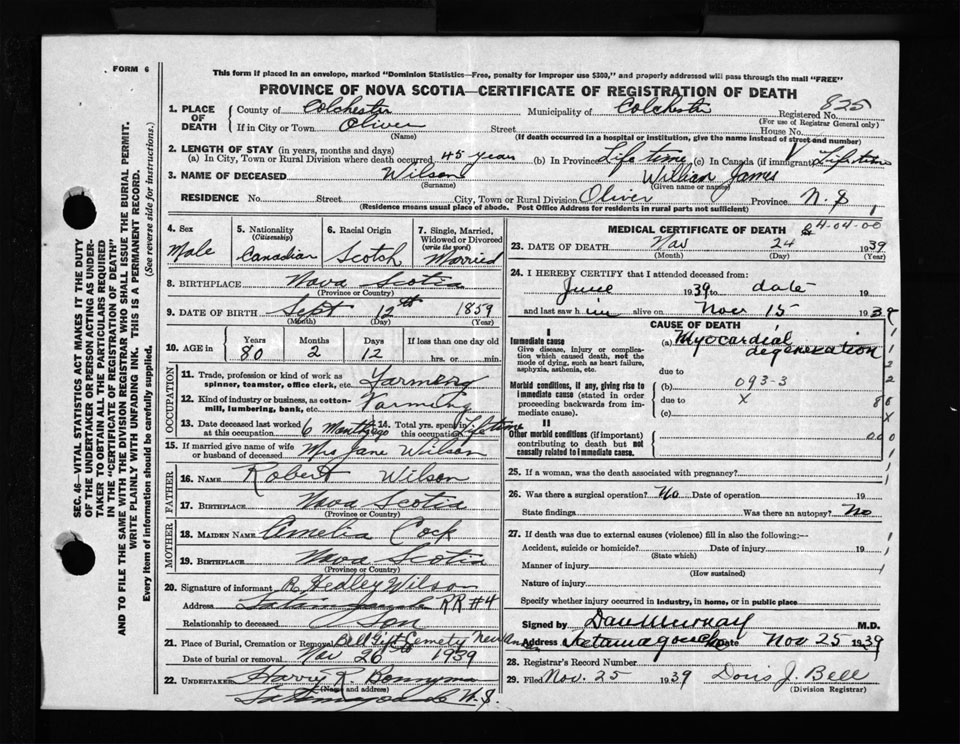 FORM 6
This form if placed in an envelope, marked "Dominion Statistics—Free, penalty for improper use $300," and properly addressed will pass through the mail "FREE"
PROVINCE OF NOVA SCOTIA—CERTIFICATE OF REGISTRATION OF DEATH
825
1. PLACE OF DEATH
County of Colchester Municipality of Colchester Registered No.
(For use of Registrar General only)
If in City or Town Oliver Street House No.
(Name) (If death occurred in a hospital or institution, give the name instead of street and number)
2. LENGTH OF STAY (in years, months and days)
(a) In City, Town or Rural Division where death occurred 45 years (b) In Province Life time (c) In Canada (if immigrant) Life time
3. NAME OF DECEASED Wilson William James
(Surname) (Given name or names)
RESIDENCE No. Street City, Town or Rural Division Oliver Province N.S
(Residence means usual place of abode. Post Office Address for residents in rural parts not sufficient)
4. Sex Male
5. Nationality (Citizenship) Canadian
6. Racial Origin Scotch
7. Single, Married, Widowed or Divorced (write the word) Married
8. BIRTHPLACE Nova Scotia
(Province or Country)
9. DATE OF BIRTH Sept 12th 1859
(Month) (Day) (Year)
10. AGE in
Years Months Days If less than one day old
80 2 12 hrs. or min.
OCCUPATION
11. Trade, profession or kind of work as spinner, teamster, office clerk, etc. Farming
12. Kind of industry or business, as cotton-mill, lumbering, bank, etc. Farming
13. Date deceased last worked at this occupation 6 Months ago 14. Total yrs. spent in this occupation Lifetime
15. If married give name of wife or husband of deceased Mrs Jane Wilson
FATHER
16. NAME Robert Wilson
17. BIRTHPLACE Nova Scotia
(Province or Country)
MOTHER
18. MAIDEN NAME Amelia Cock
19. BIRTHPLACE Nova Scotia
(Province or Country)
20. Signature of informant R Hedley Wilson
Address RR #4
Relationship to deceased Son
21. Place of Burial, Cremation or Removal Cemetery
Date of burial or removal Nov 26 1939
22. UNDERTAKER Harry R. Bonnyman
(Name and address)
N.S.
MEDICAL CERTIFICATE OF DEATH
4-04-00
23. DATE OF DEATH Nov 24 1939
(Month) (Day) (Year)
24. I HEREBY CERTIFY that I attended deceased from:
June 1939 to date 19
and last saw him alive on Nov 15 1939
CAUSE OF DEATH
I
Immediate cause
Give disease, injury or complication which caused death, not the mode of dying, such as heart failure, asphyxia, asthenia, etc.
(a) Myocardial degeneration
due to
Morbid conditions, if any, giving rise to immediate cause (stated in order proceeding backwards from immediate cause).
(b) 093-3
due to x
(c)
II
Other morbid conditions (if important) contributing to death but not causally related to immediate cause.
25. If a woman, was the death associated with pregnancy?
26. Was there a surgical operation? No Date of operation 19
State findings Was there an autopsy? No
27. If death was due to external causes (violence) fill in also the following:—
Accident, suicide or homicide? Date of injury 19
(State which)
Manner of injury
(How sustained)
Nature of injury
Specify whether injury occurred in industry, in home, or in public place
Signed by Dan Murray M.D.
Address Tatamagouche Date Nov 25 1939
28. Registrar's Record Number
29. Filed Nov. 25 1939 Doris J. Bell
(Division Registrar)
SEC. 46—VITAL STATISTICS ACT MAKES IT THE DUTY
OF THE UNDERTAKER OR PERSON ACTING AS UNDER-
TAKER TO OBTAIN ALL THE PARTICULARS REQUIRED
IN THE "CERTIFICATE OF REGISTRATION OF DEATH"
AND TO FILE THE SAME WITH THE DIVISION REGISTRAR WHO SHALL ISSUE THE BURIAL PERMIT.
WRITE PLAINLY WITH UNFADING INK. THIS IS A PERMANENT RECORD.
Every item of information should be carefully supplied. (See reverse side for instructions.)